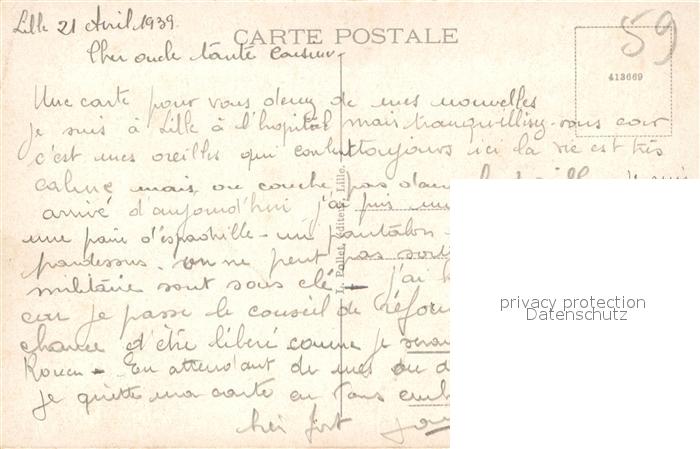 Lille 21 Avril 1939.
59
CARTE POSTALE
Cher oncle tante
413669
Une carte pour vous de mes nouvelles
je suis à Lille à l'hopital mais tranquillisez-vous car
c'est mes oreilles qui coulent toujours ici la vie est très
calme mais on couche pas dans
arrivé d'aujourd'hui j'ai
une paire d'espadrille - un pantalon -
pardessus. on ne peut pas
militaire sont sous clé - j'ai
car je passe le conseil de
chance d'être libéré comme je
Rouen - En attendant de mes ou
je quitte ma carte en
fort
L. Pollet, éditeur, Lille.
privacy protection
Datenschutz